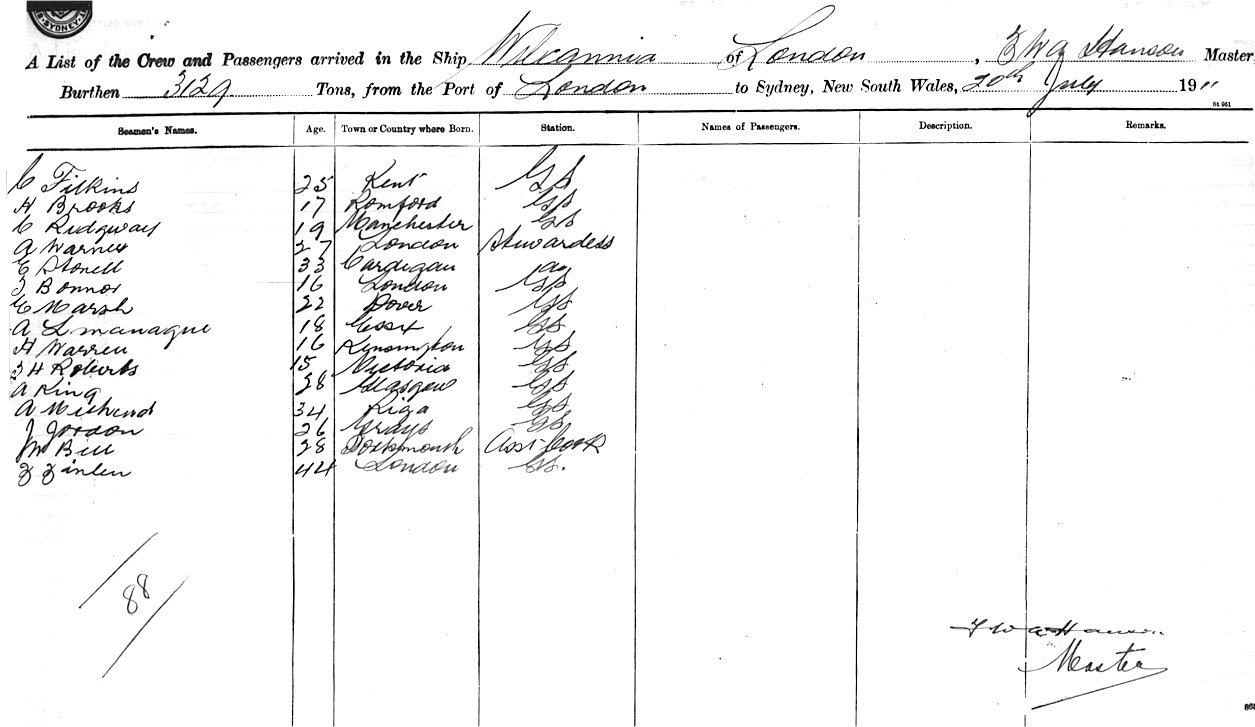 SYDNEY
A List of the Crew and Passengers arrived in the Ship Wilcannia of London, F W A Hanson Master,
Burthen 3129 Tons, from the Port of London to Sydney, New South Wales, 20th July 1911
St 951
Seamen's Names. Age. Town or Country where Born. Station. Names of Passengers. Description. Remarks.
C Filkins 25 Kent GS
H Brooks 17 Romford GS
C Ridgway 19 Manchester GS
A Warner 27 London Stewardess
E Stonell 33 Cardigan
J Bonnor 16 London GS
E Marsh 22 Dover GS
A Lmanague 18 Essex GS
H Warren 16 Kensington GS
H Roberts 15 Victoria GS
A King 28 Glasgow GS
A 34 Riga GS
J Jordon 26 Grays GS
M Bill 28 Portsmouth Asst Cook
44 London GS.
88
F W A Hanson
Master